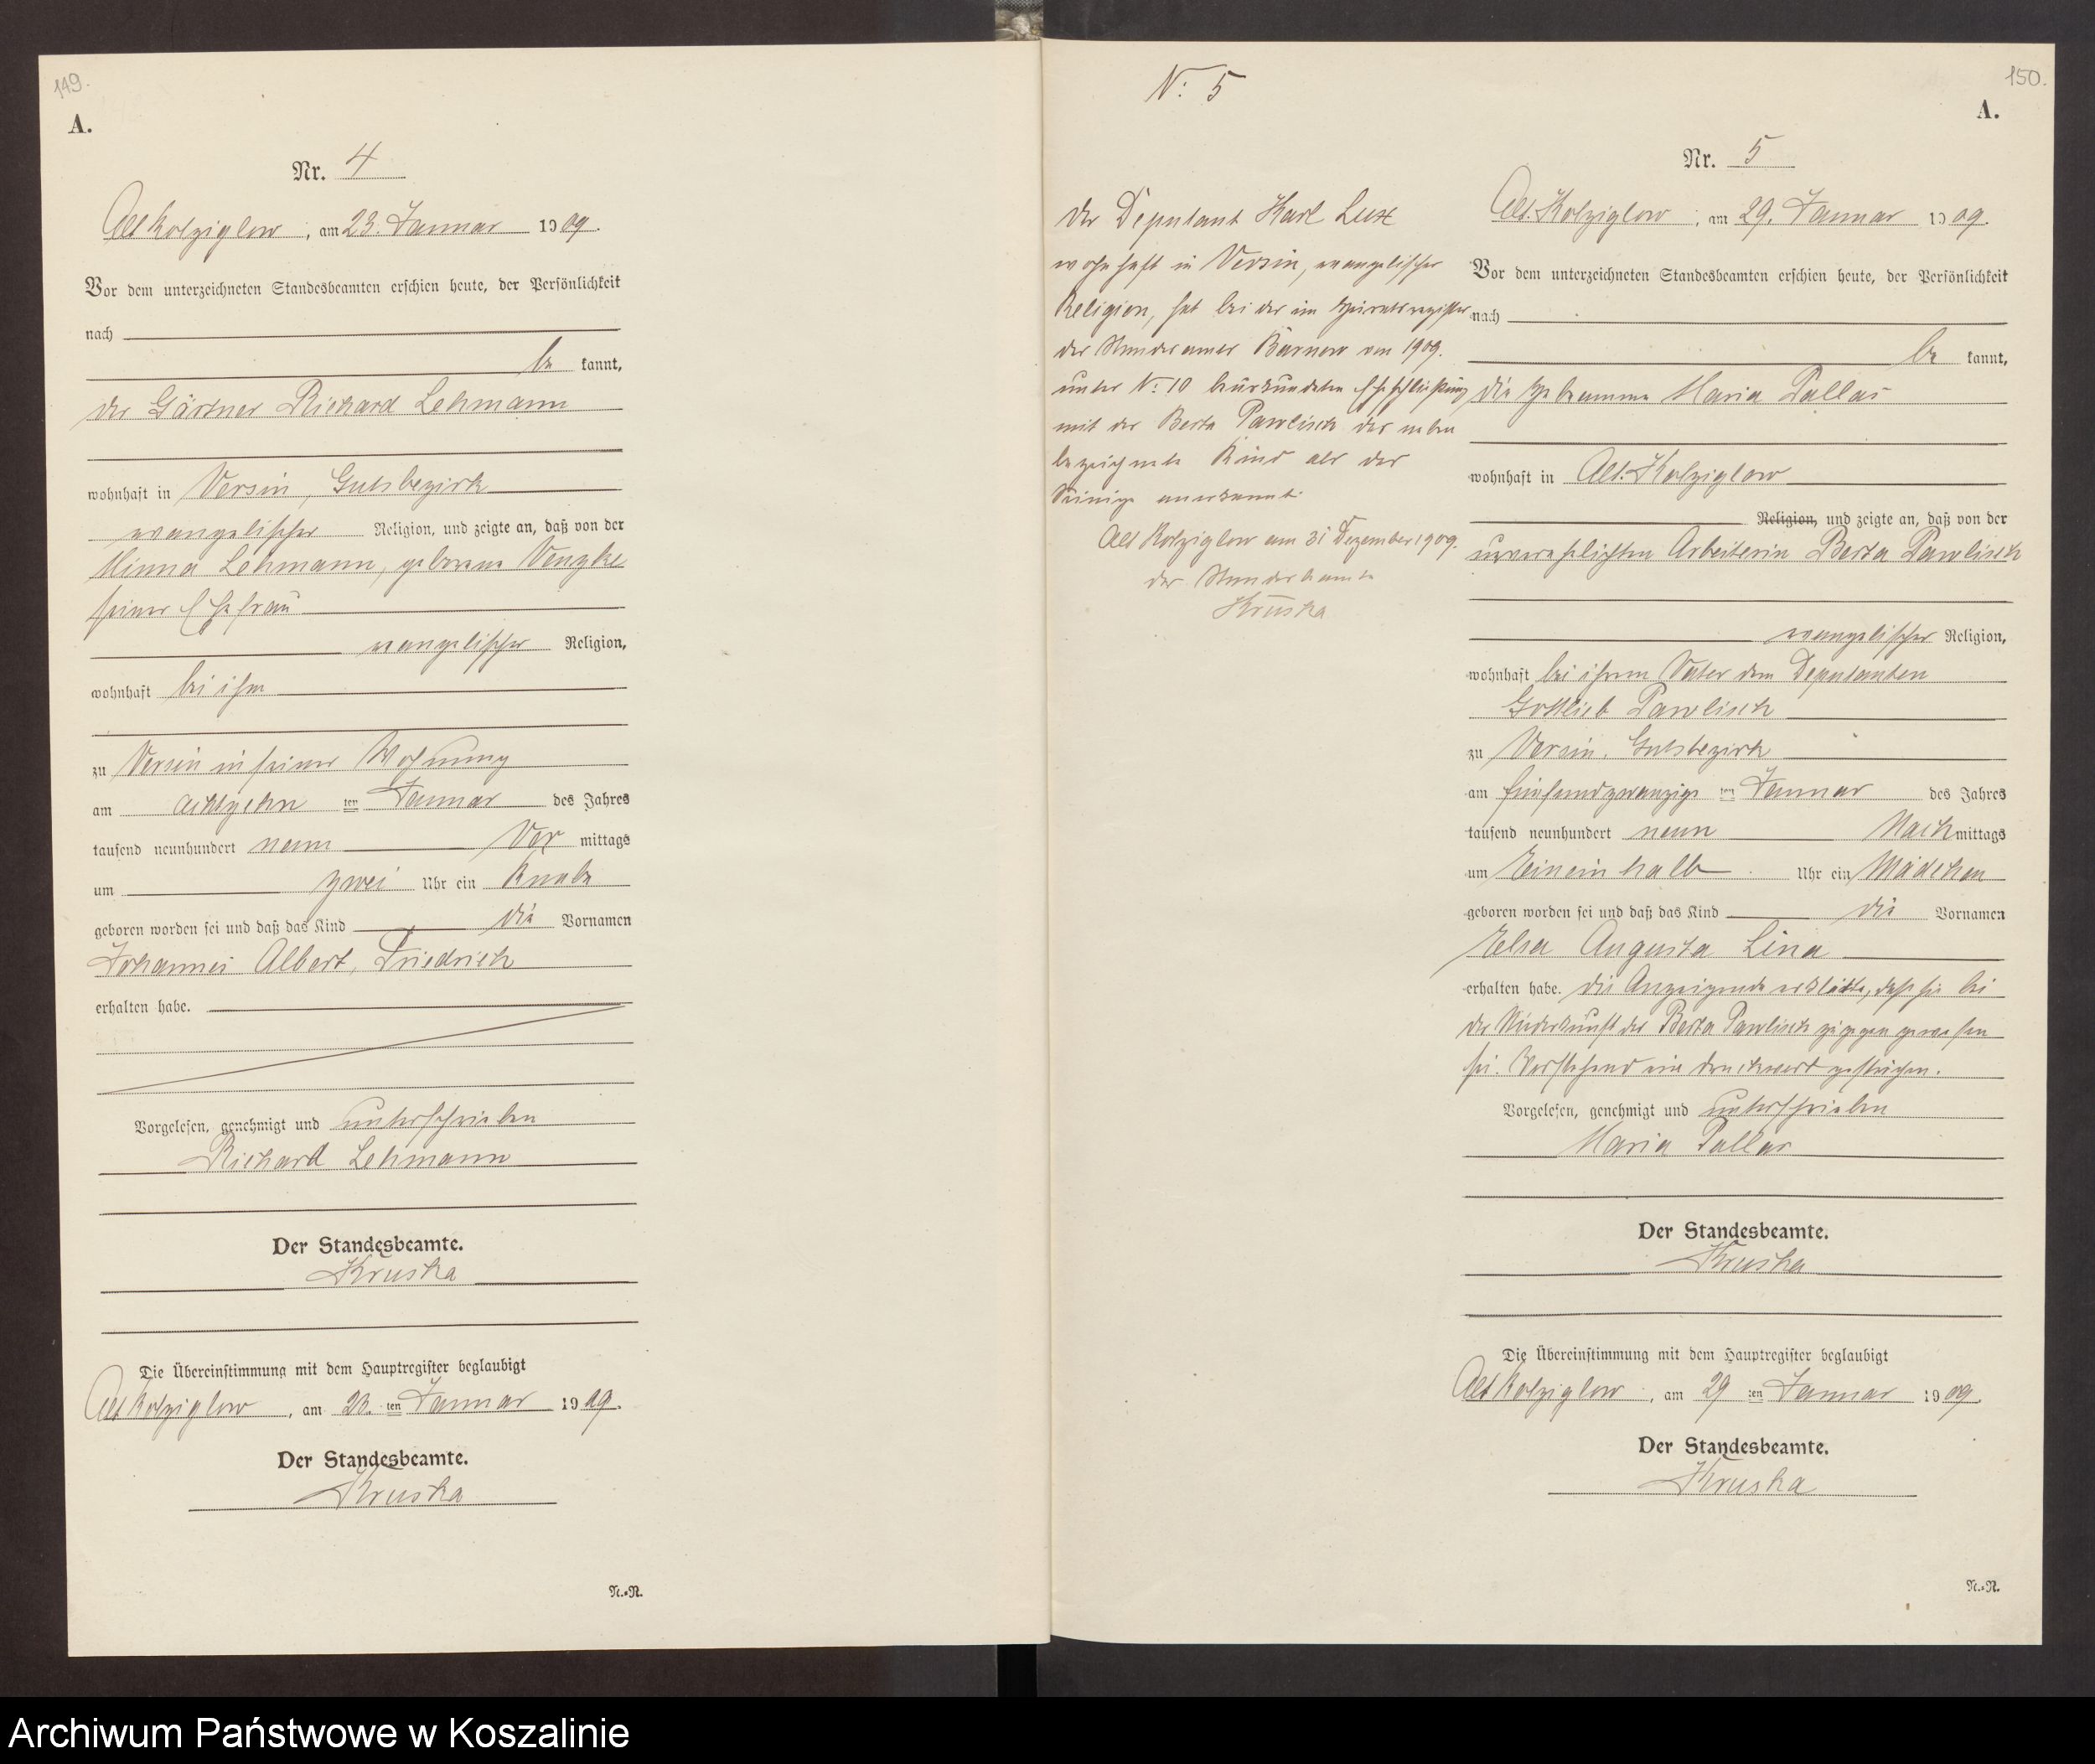 149.
A.
Nr. 4
Alt Kolziglow, am 23. Januar 1909.
Vor dem unterzeichneten Standesbeamten erschien heute, der Persönlichkeit
nach
be kannt,
der Gärtner Richard Lehmann
wohnhaft in Versin, Gutsbezirk
evangelischer Religion, und zeigte an, daß von der
Minna Lehmann, geborene Venzke
seiner Ehefrau
evangelischer Religion,
wohnhaft bei ihm
zu Versin in seiner Wohnung
am achtzehn ten Januar des Jahres
tausend neunhundert neun Vor mittags
um zwei Uhr ein Knabe
geboren worden sei und daß das Kind die Vornamen
Johannes Albert, Friedrich
erhalten habe.
Vorgelesen, genehmigt und unterschrieben
Richard Lehmann
Der Standesbeamte.
Kruska
Die Übereinstimmung mit dem Hauptregister beglaubigt
Alt Kolziglow, am 23. ten Januar 1909.
Der Standesbeamte.
Kruska
N.=N.
N: 5
Der Deputant Karl Lux
wohnhaft in Versin, evangelischer
Religion, hat bei der im Heiratsregister
des Standesamts Barnow von 1909.
unter N: 10 beurkundeten Eheschließung
mit der Berta Pawlisch das neben
bezeichnete Kind als das
Seinige anerkannt.
Alt Kolziglow am 31 Dezember 1909.
Der Standesbeamte
Kruska
150.
A.
Nr. 5
Alt. Kolziglow, am 29. Januar 1909.
Vor dem unterzeichneten Standesbeamten erschien heute, der Persönlichkeit
nach
be kannt,
die Hebamme Maria Pallas
wohnhaft in Alt. Kolziglow
Religion, und zeigte an, daß von der
unverehelichten Arbeiterin Berta Pawlisch
evangelischer Religion,
wohnhaft bei ihrem Vater dem Deputanten
Gottlieb Pawlisch
zu Versin, Gutsbezirk
am fünfundzwanzig ten Januar des Jahres
tausend neunhundert neun Nachmittags
um Eineinhalb Uhr ein Mädchen
geboren worden sei und daß das Kind die Vornamen
Elsa Augusta Lina
erhalten habe. Die Anzeigende erklärte, daß sie bei
der Niederkunft der Berta Pawlisch zugegen gewesen
sei. Vorstehend ein Druckwort gestrichen.
Vorgelesen, genehmigt und unterschrieben
Maria Pallas
Der Standesbeamte.
Kruska
Die Übereinstimmung mit dem Hauptregister beglaubigt
Alt Kolziglow, am 29 ten Januar 1909.
Der Standesbeamte.
Kruska
N.=N.
Archiwum Państwowe w Koszalinie